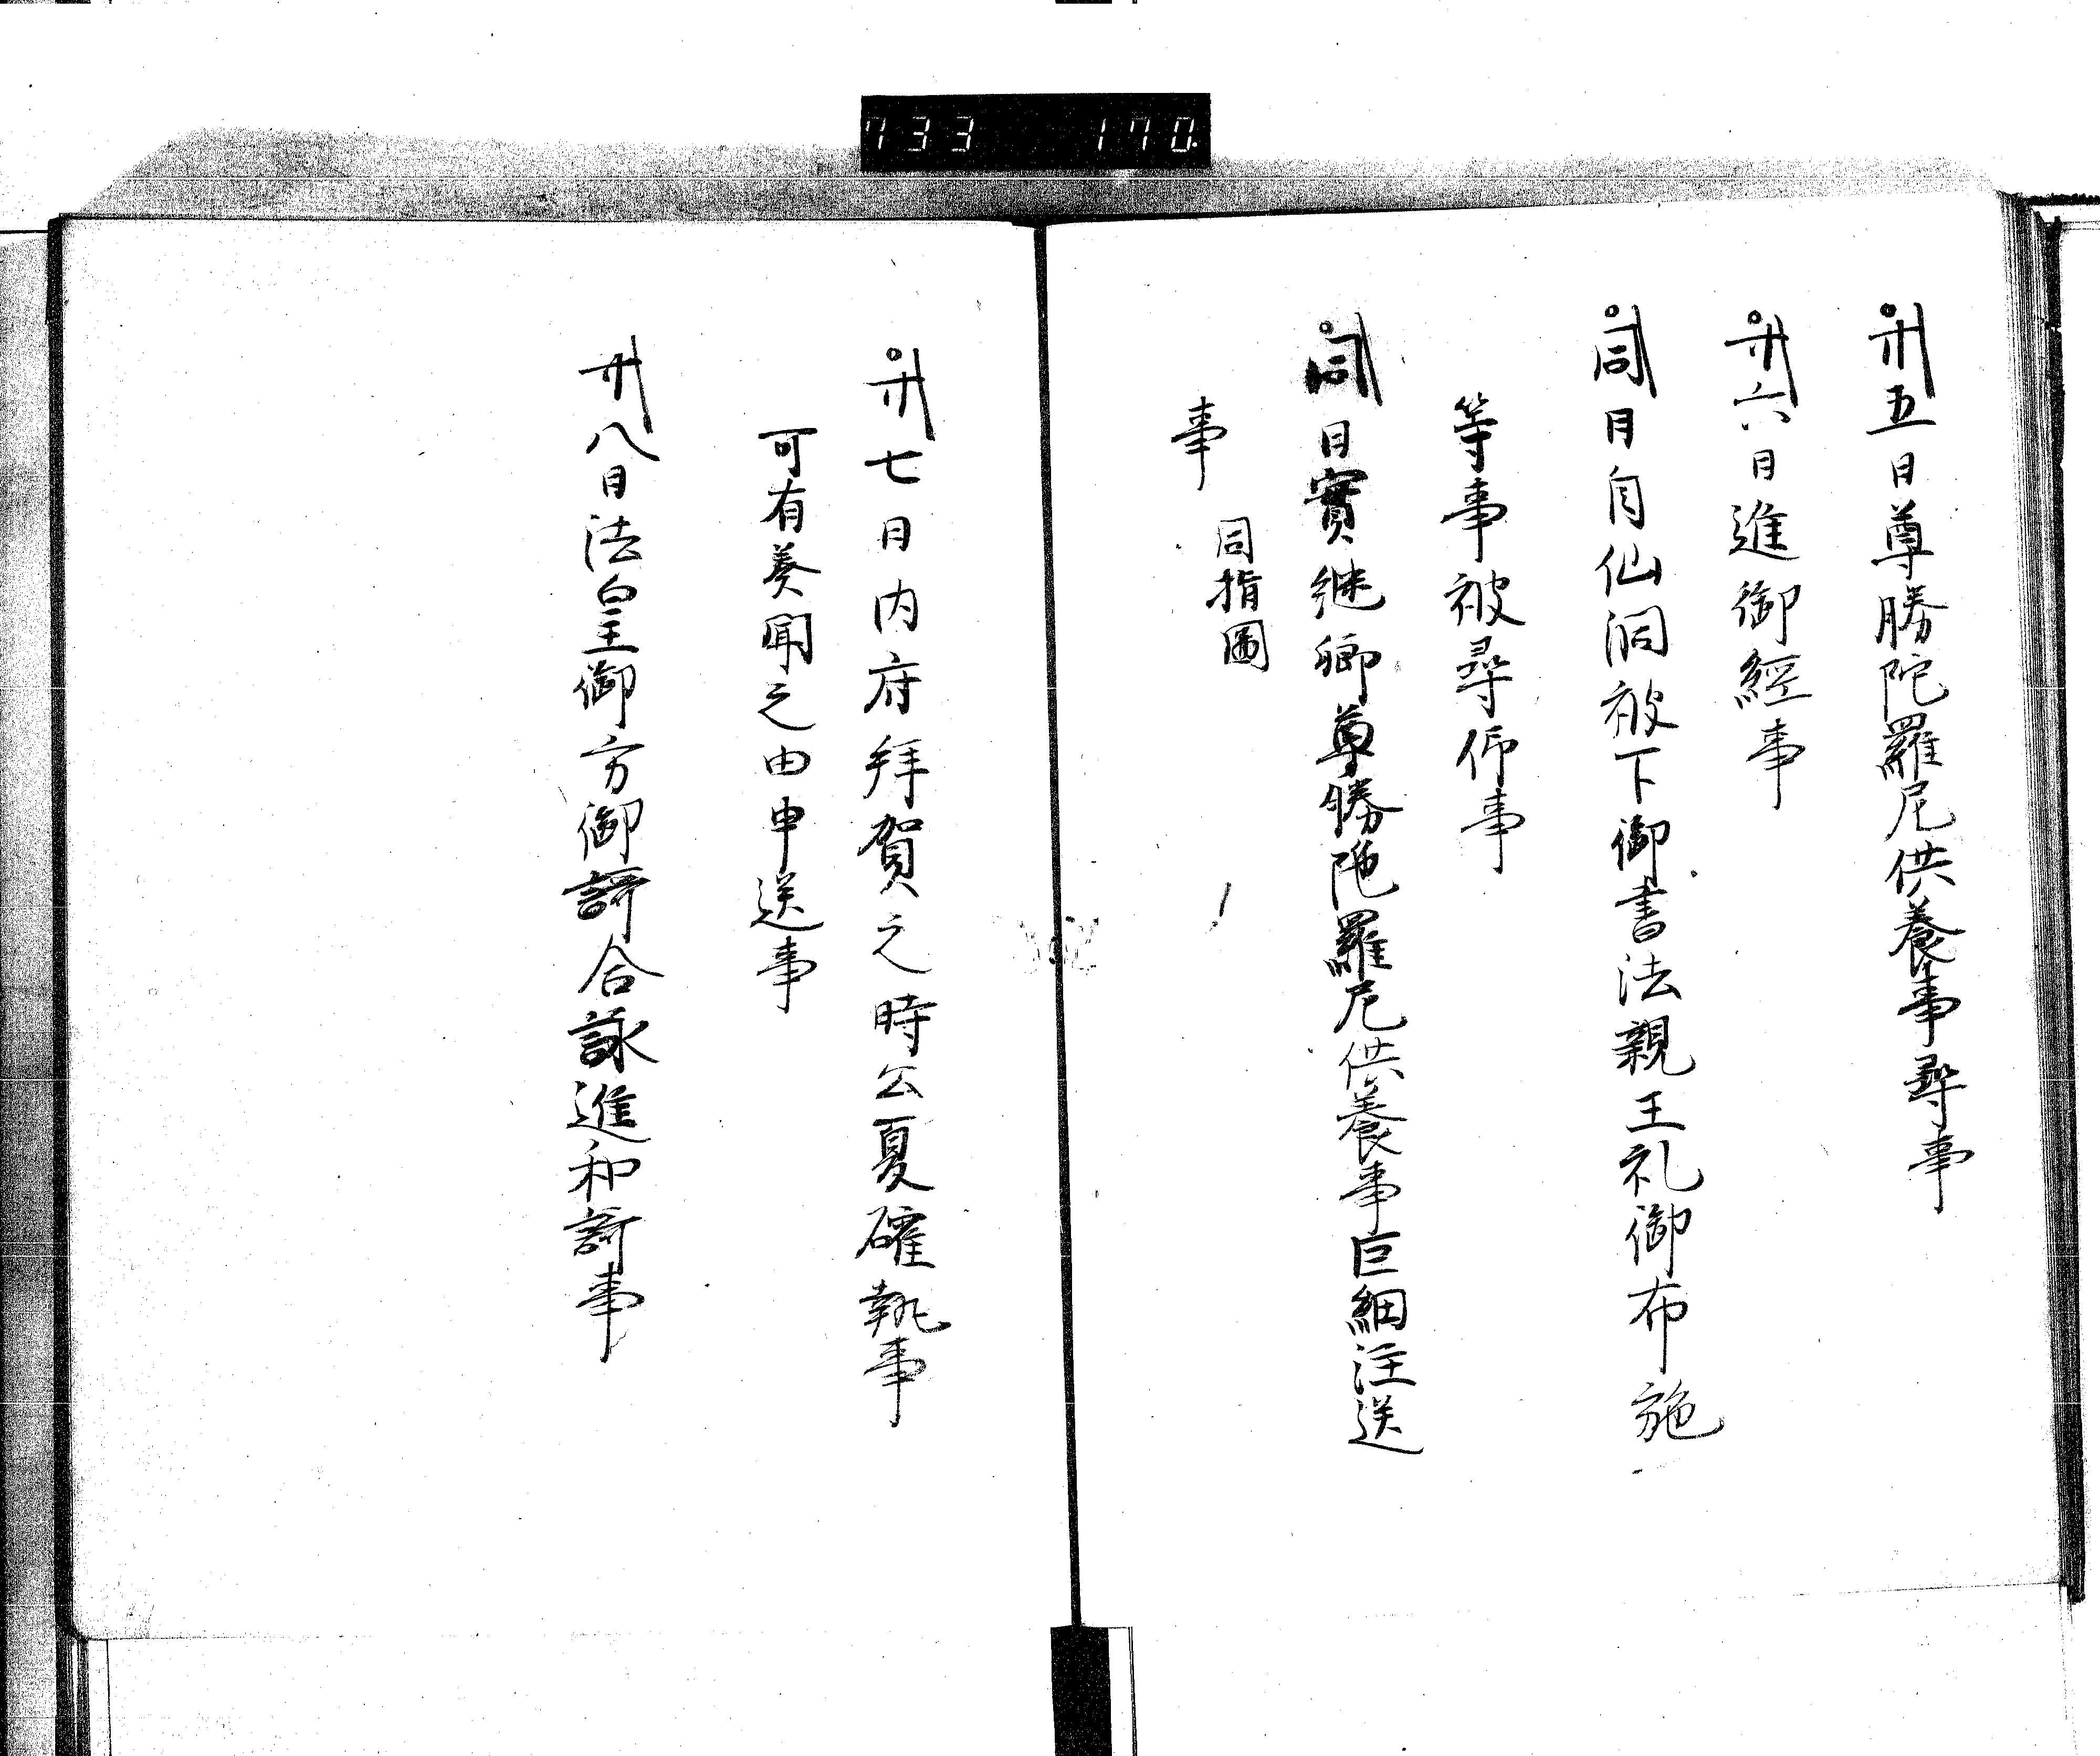 733 170
廿五日尊勝陀羅尼供養事尋事
廿六日進御經事
同日自仙洞被下御書法親王礼御布施
等事被尋仰事
同日實継卿尊勝陀羅尼供養事巨細注送
事 同指圖
廿七日内府拜賀之時公夏確執事
可有奏聞之由申送事
廿八日法皇御方御謌合詠進和謌事